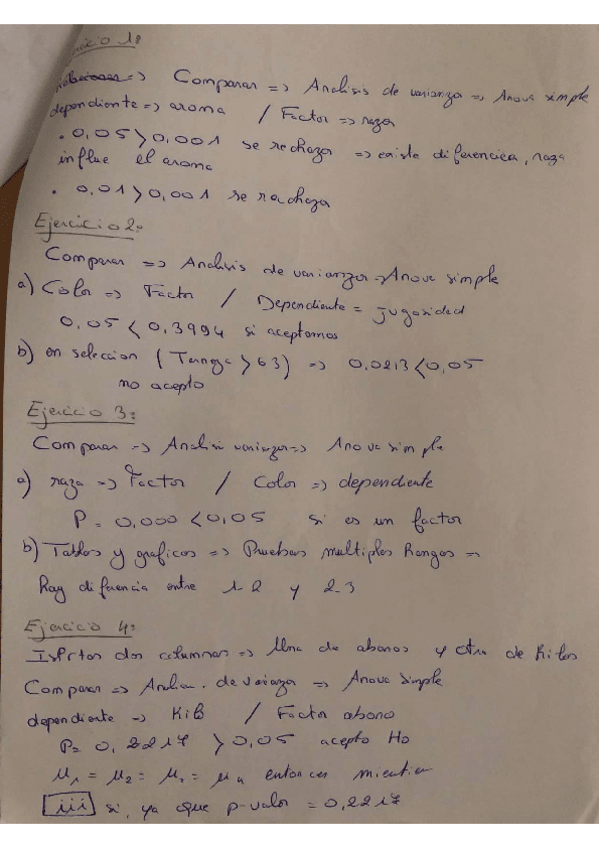 Ejercicio 1:
=> Comparar => Analisis de varianza => Anova simple
dependiente => aroma / Factor => raza
. 0,05 > 0,001 se rechaza => existe diferencica, raza
influe el aroma
. 0,01 > 0,001 se rechaza
Ejercicio 2:
Comparar => Analisis de varianza => Anova simple
a) Color => Factor / Dependiente = jugosidad
0,05 < 0,3994 si aceptamos
b) en seleccion ( > 63) => 0,0213 < 0,05
no acepto
Ejercicio 3:
Comparar => Analisi varianza => Anova simple
a) raza => Factor / Color => dependiente
P = 0,000 < 0,05 si es un factor
b) Tablas y graficos => Pruebas multiples Rangos =>
Hay diferencia entre 1-2 y 2-3
Ejercicio 4:
dos columnas => Una de abonos y otra de Kilos
Comparar => Analisi. de varianza => Anova simple
dependiente => Kilo / Factor abono
P = 0,2217 > 0,05 acepto Ho
μ1 = μ2 = μ3 = μ4 entonces
iii si, ya que p-valor = 0,2217